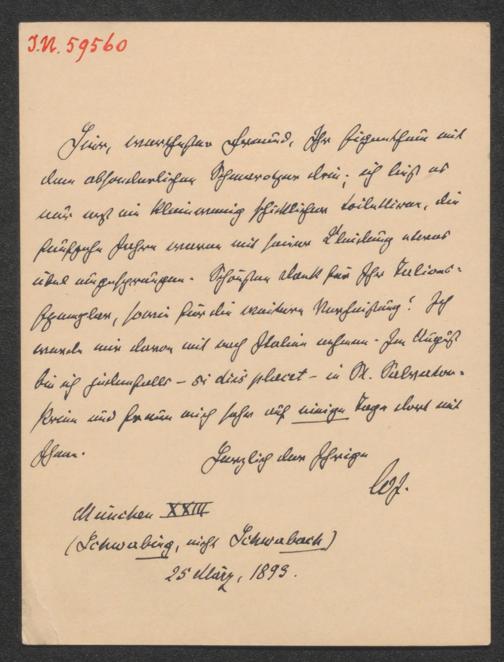 J.N. 59560
Hier, werthester Freund, Ihr Eigenthum mit
dem absonderlichen Schmarotzer drin; ich ließ es
nur erst ein klein wenig schicklicher toilettiren, die
fünfzehn Jahre waren mit seiner Kleidung etwas
übel umgesprungen. Schönsten Dank für Ihr
Exemplar, sowie für die weitere Verheißung! Ich
werde mir davon mit nach Italien nehmen. Im August
bin ich jedenfalls – si diis placet – in St. Salvator-
Prein und freue mich sehr auf einige Tage dort mit
Ihnen.
Herzlich der Ihrige
München XXIII
(Schwabing, nicht Schwabach)
25 März, 1893.